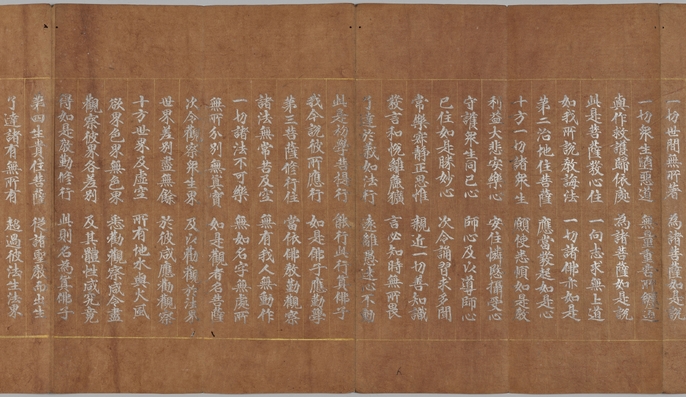 一切世間無所著 為諸菩薩如是說
一切眾生墮惡道 無量重苦所纏迫
與作救護歸依處 為諸菩薩如是說
此是菩薩發心住 一向志求無上道
如我所說教誨法 一切諸佛亦如是
第二治地住菩薩 應當發起如是心
十方一切諸眾生 願使悉順如是教
利益大悲安樂心 安住憐愍攝受心
守護眾生同己心 師心及以導師心
已住如是勝妙心 次令誦習求多聞
常樂寂靜正思惟 親近一切善知識
發言和悅離麁獷 言必知時無所畏
了達於義如法行 遠離愚迷心不動
此是初學菩提行 能行此行真佛子
我今說彼所應行 如是佛子應勤學
第三菩薩修行住 當依佛教勤觀察
諸法無常苦及空 無有我人無動作
一切諸法不可樂 無如名字無處所
無所分別無真實 如是觀者名菩薩
次令觀察眾生界 及以勸觀於法界
世界差別盡無餘 於彼咸應勸觀察
十方世界及虛空 所有地水與火風
欲界色界無色界 悉勸觀察咸令盡
觀察彼界各差別 及其體性咸究竟
得如是教勤修行 此則名為真佛子
第四生貴住菩薩 從諸聖教而出生
了達諸有無所有 超過彼法生法界